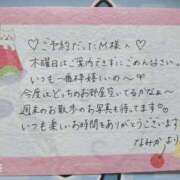 ♡ご予約だったM様へ♡
木曜日はご案内できずにごめんなさい。
いつも一番枠嬉しいの〜♡
今度はどっちのお部屋空いてるかなぁ〜
週末のお散歩のお写真も待ってます。
いつも楽しいお時間をありがとうございます
なみかより